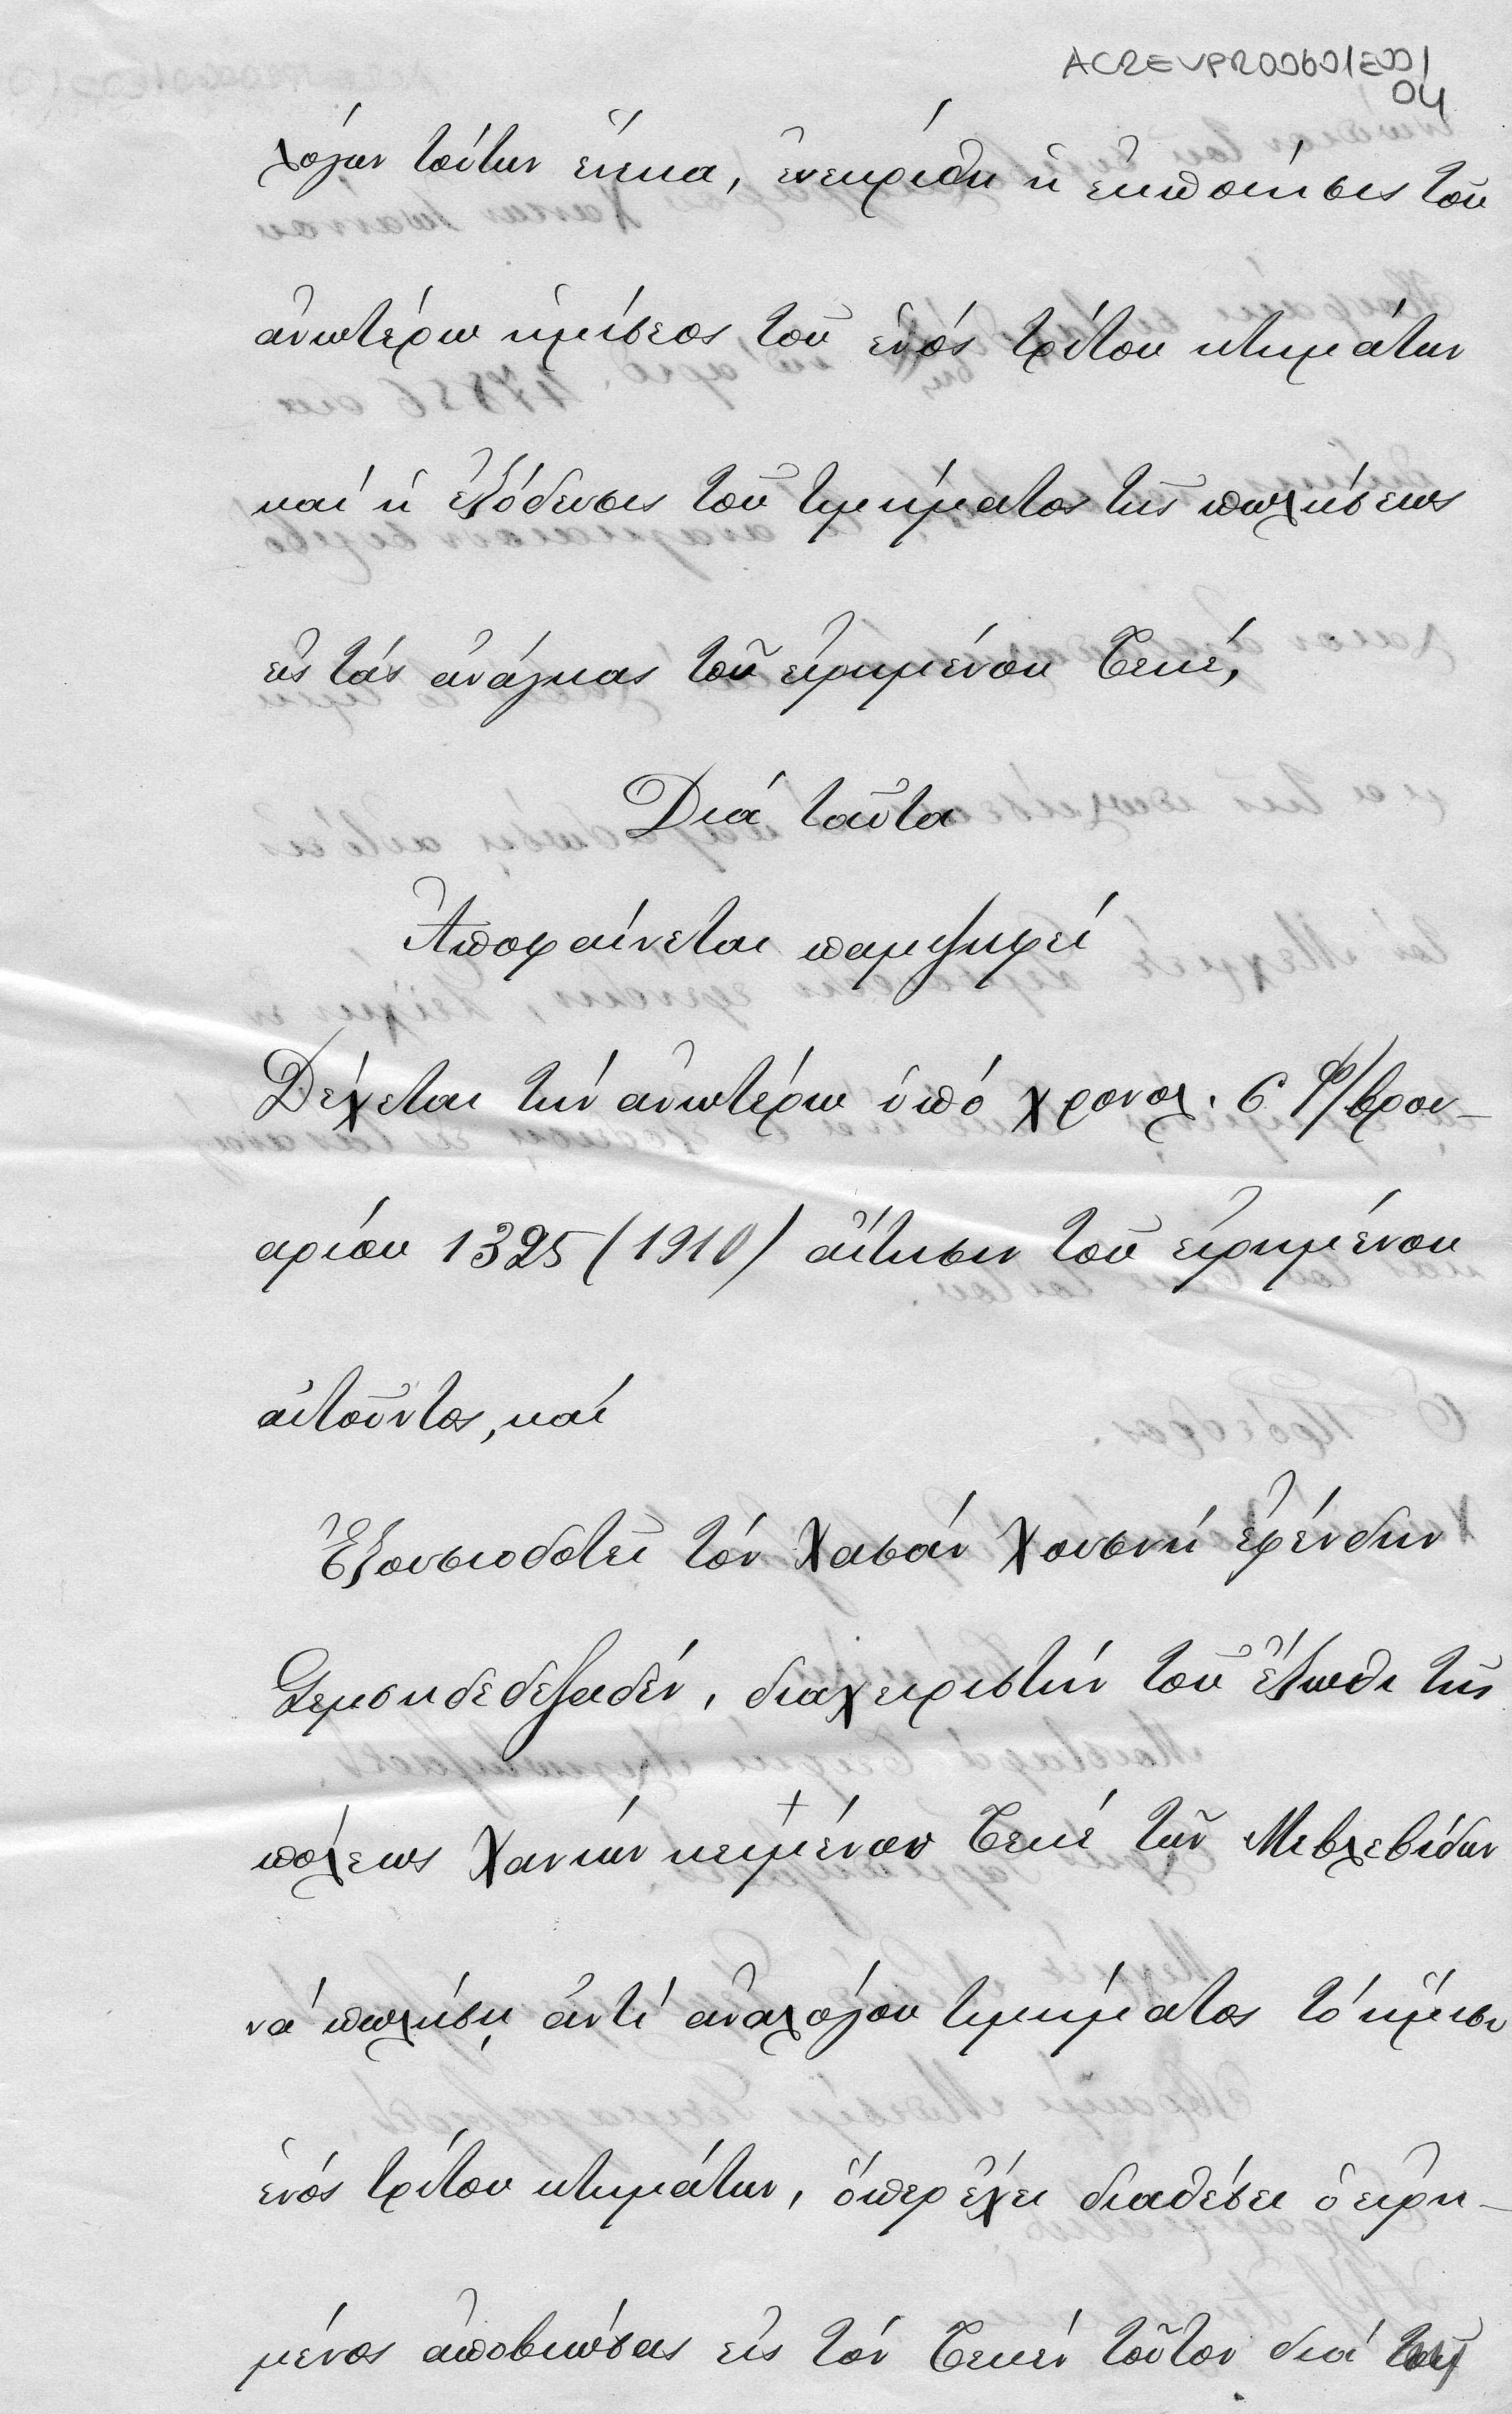 ACREVPR00601E001
04
λόγων τούτων εἵνεκα, ἐνεκρίθη ἡ ἐκποίησις τοῦ
ἀνωτέρω ἡμίσεος τοῦ ἑνός τρίτου κτημάτων
καί ἡ ἐξόδευσις τοῦ τιμήματος τῆς πωλήσεως
εἰς τάς ἀνάγκας τοῦ εἰρημένου Τεκέ,
Διά ταῦτα
Ἀποφαίνεται παμψηφεί
Δέχεται τήν ἀνωτέρω ὑπό χρονολ. 6 Φ/βρου-
αρίου 1325 (1910) αἴτησιν τοῦ εἰρημένου
αἰτοῦντος, καί
Ἐξουσιοδοτεῖ τόν Χασάν Χουσνή ἐφένδην
Σεμσηδεδεζαδέν, διαχειριστήν τοῦ ἔξωθι τῆς
πόλεως Χανίων κειμένου Τεκέ τῶν Μεβλεβίδων
νά πωλήσῃ ἀντί ἀναλόγου τιμήματος τό ἥμισυ
ἑνός τρίτου κτημάτων, ὅπερ ἔχει διαθέσει ὁ εἰρη-
μένος ἀποβιώσας εἰς τόν Τεκέν τοῦτον διά